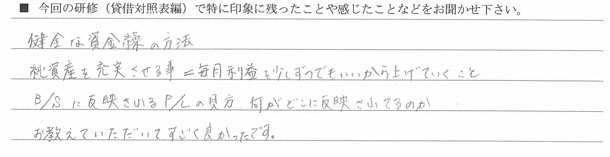 ■ 今回の研修（貸借対照表編）で特に印象に残ったことや感じたことなどをお聞かせ下さい。
健全な資金繰の方法
純資産を充実させる事＝毎月利益を少しずつでもいいから上げていくこと
B/Sに反映されるP/Lの見方 何がどこに反映されてるのか
お教えていただいてすごく良かったです。